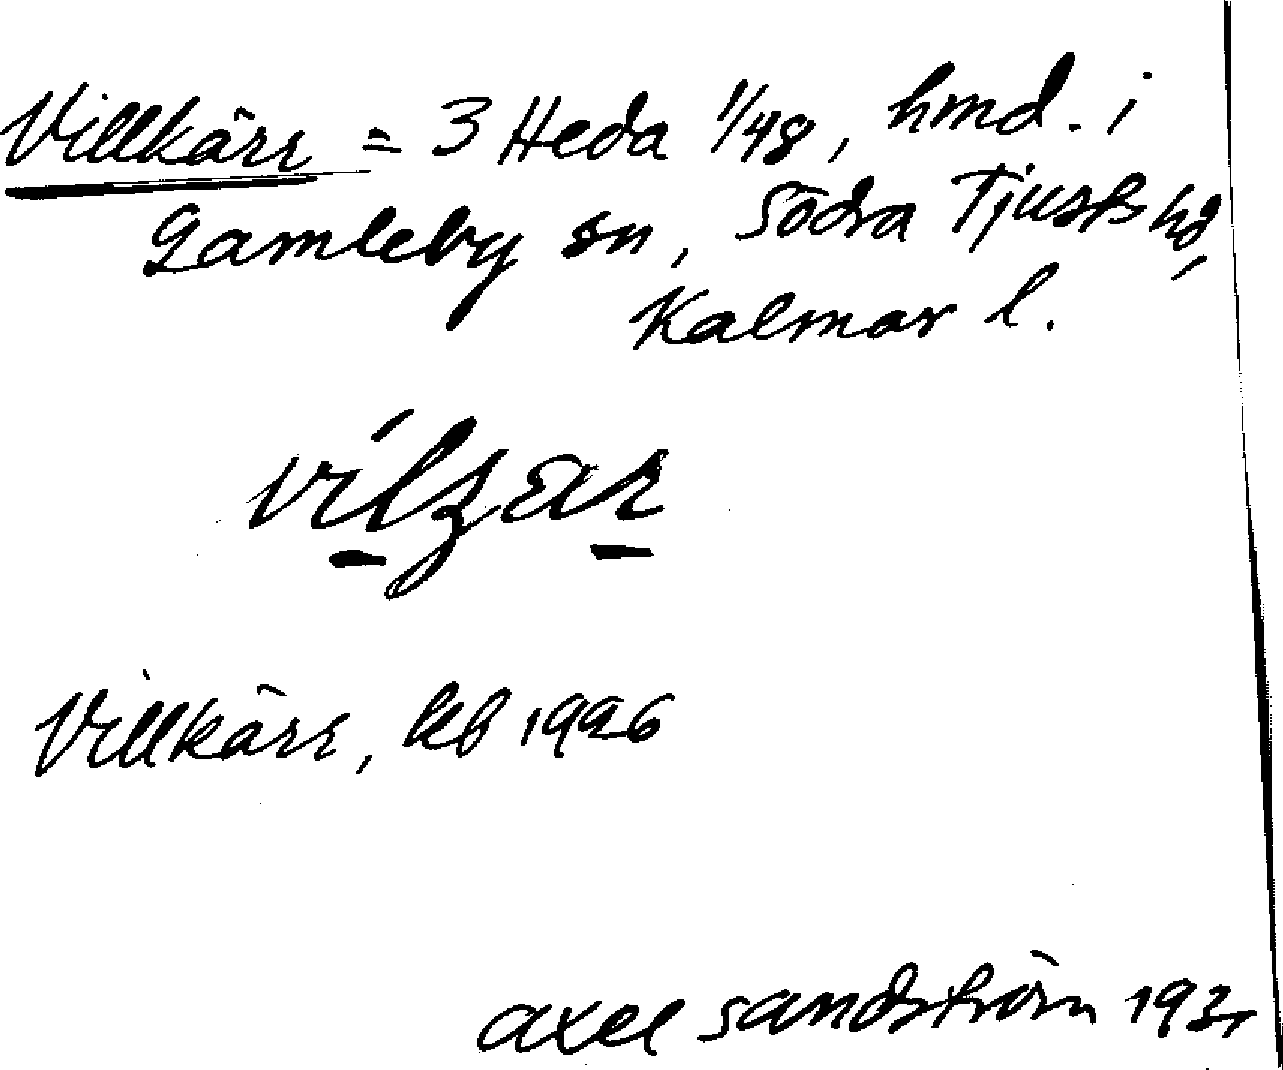 Villkärr = 3 Heda 1/48, hmd. i
Gamleby sn, Södra Tjusts hd,
Kalmar l.
vilzar
Villkärr, kb 1926
Axel Sandström 193